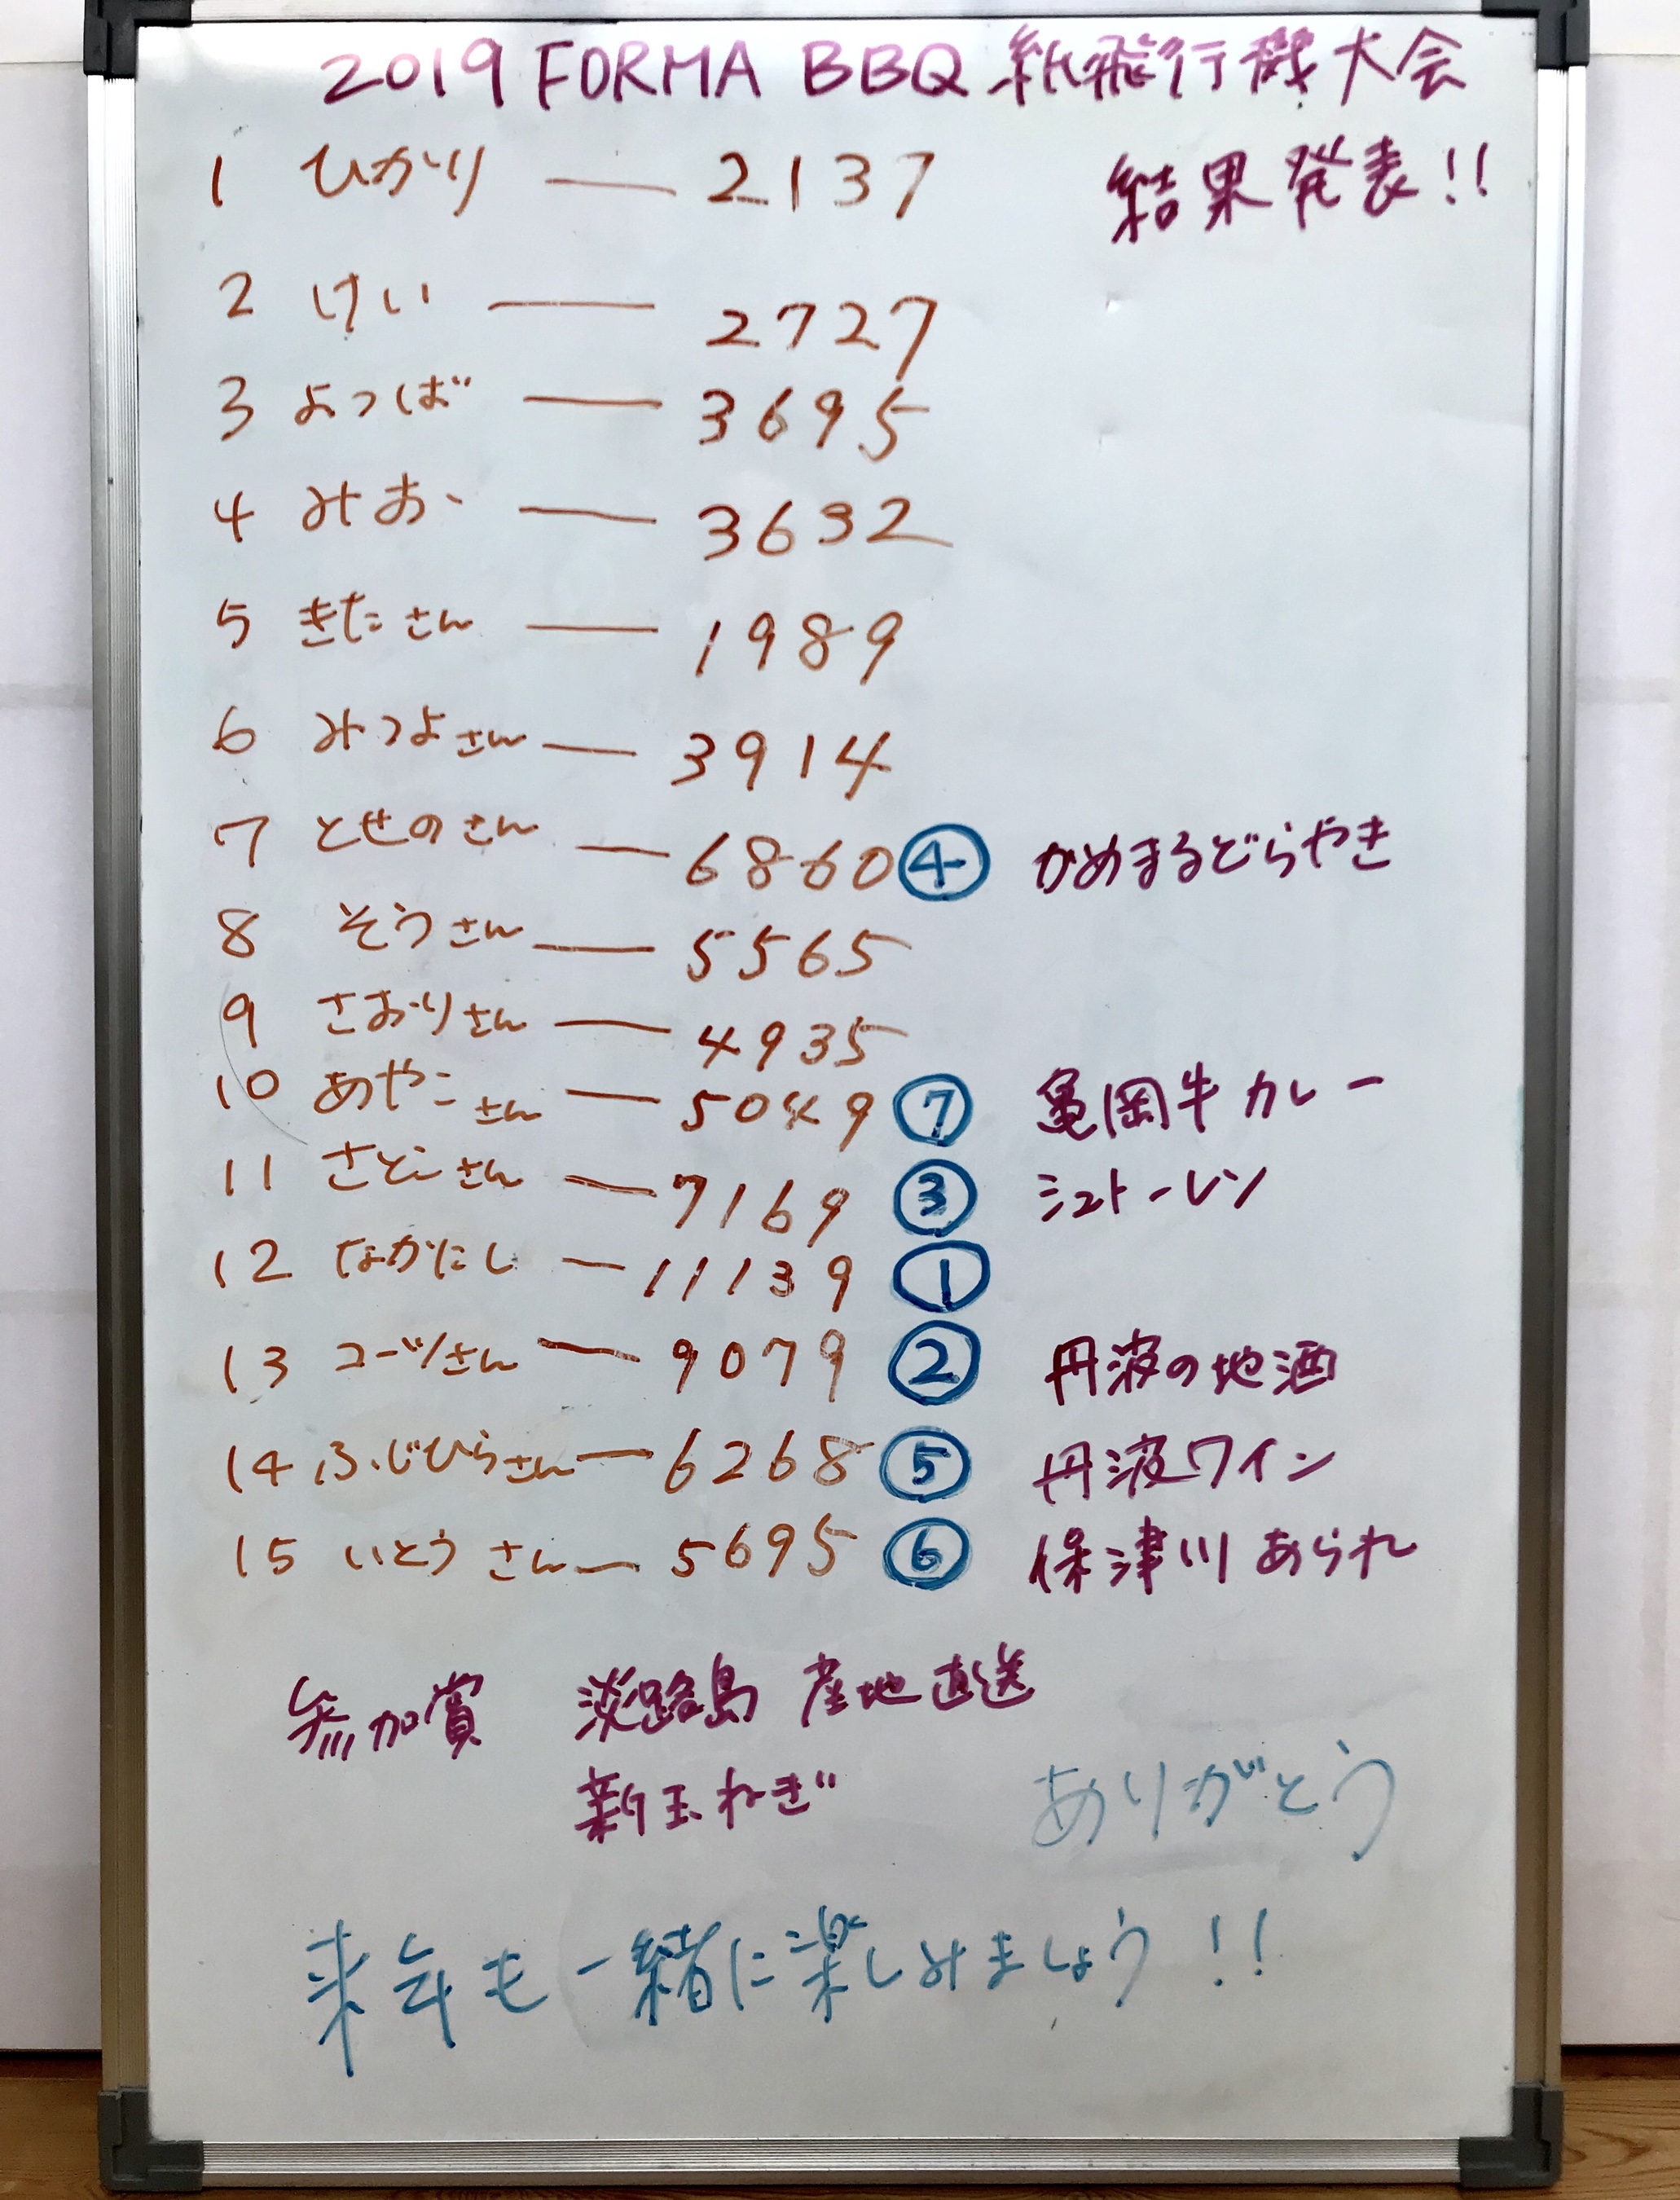 2019 FORMA BBQ 紙飛行機大会
結果発表!!
1 ひかり — 2137
2 けい — 2727
3 よつば — 3695
4 みお — 3632
5 きたさん — 1989
6 みつよさん — 3914
7 とせのさん — 6860 ④ かめまるどらやき
8 そうさん — 5565
9 さおりさん — 4935
10 あやこさん — 5049 ⑦ 亀岡牛カレー
11 さとこさん — 7169 ③ シュトーレン
12 なかにし — 11139 ①
13 コージさん — 9079 ② 丹波の地酒
14 ふじひらさん — 6268 ⑤ 丹波ワイン
15 いとうさん — 5695 ⑥ 保津川あられ
参加賞 淡路島 産地直送
新玉ねぎ
ありがとう
来年も一緒に楽しみましょう!!